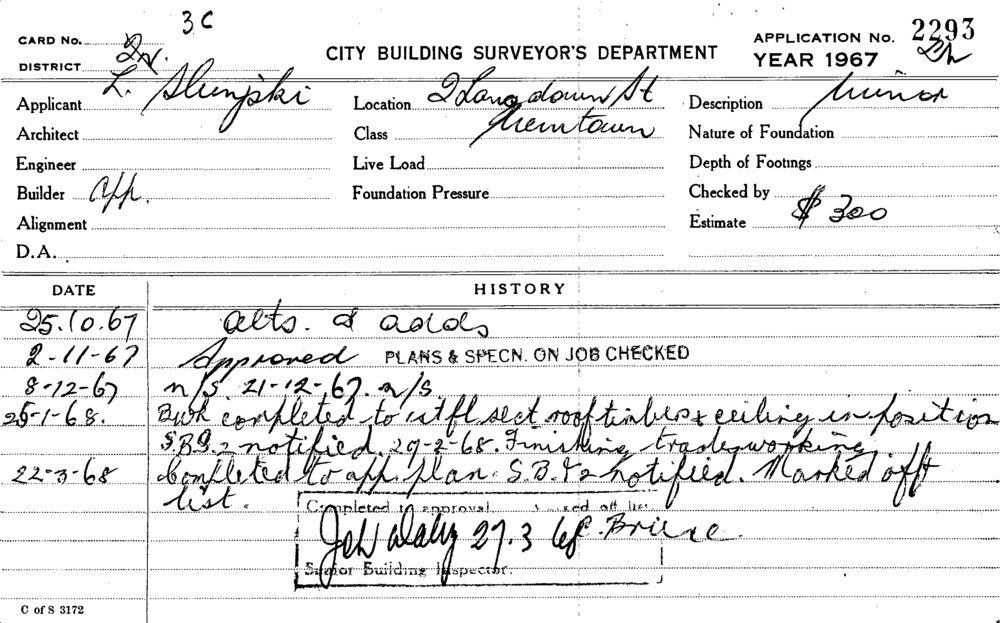 3C
CARD No.
DISTRICT 2N.
CITY BUILDING SURVEYOR'S DEPARTMENT
APPLICATION No. 2293
YEAR 1967
Applicant L.
Location 2 Langdown St
Description Minor
Architect
Class Newtown
Nature of Foundation
Engineer
Live Load
Depth of Footings
Builder App.
Foundation Pressure
Checked by
Alignment
Estimate $ 300
D.A.
DATE HISTORY
25.10.67 alts. & adds
2-11-67 Approved PLANS & SPECN. ON JOB CHECKED
8-12-67 n/s. 21-12-67. n/s.
25-1-68. completed to 1st fl sect. roof timbers & ceiling in position
notified. 29-2-68. Finishing trades working
22-3-68 Completed to app. plan. notified. Marked off
list.
Completed to approval, ked off list
27.3 68
Senior Building Inspector.
C of S 3172